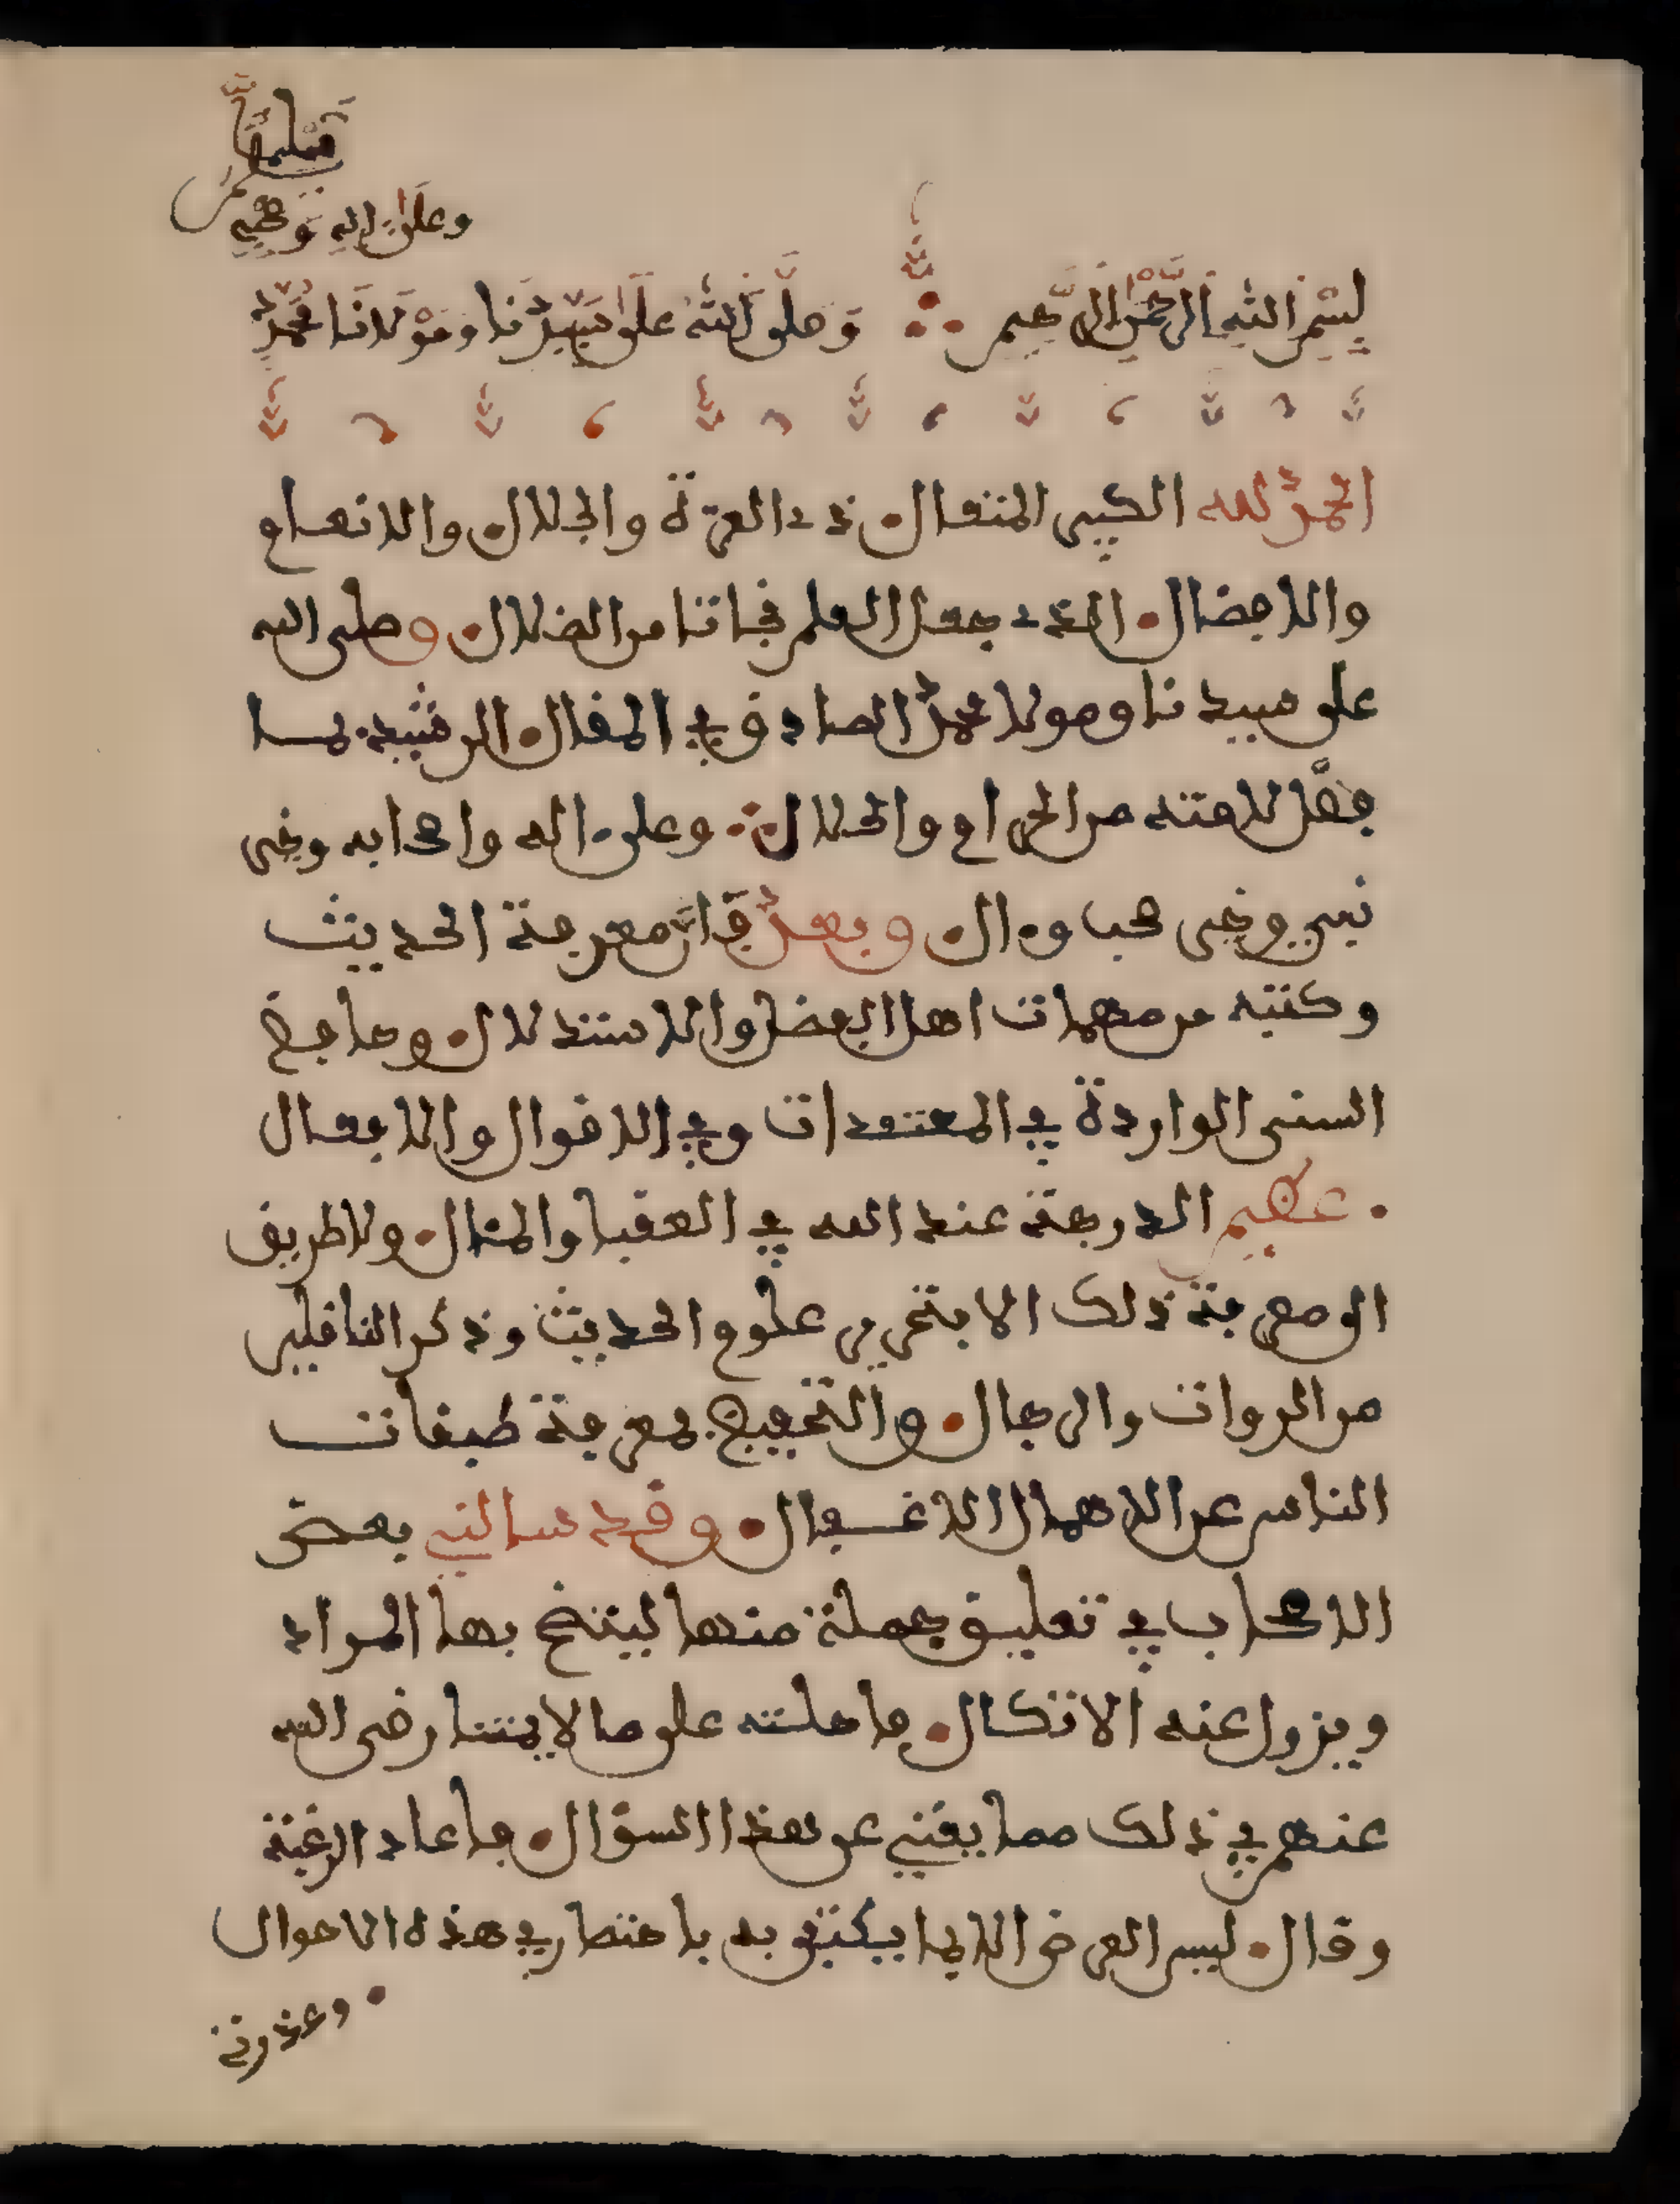 تسليما
وعلى اله وصحبه
بسم الله الرحمن الرحيم ∴ وصلى الله على سيدنا ومولانا محمد
الحمد لله الكبير المتعال • ذي العزة والجلال والانعام
والافضال • الذي جعل العلم نجاتنا من الضلال • وصلى الله
على سيدنا ومولا محمد الصادق في المقال المرشد لما
فصّل لامته من الحرام والحلال ∴ وعلى اله واصحابه وخير
نبي وخير صحب وءال • وبعد فان معرفة الحديث
وكتبه من مهمات اهل الفضل والاستدلال • وحافظ
السنن الواردة في المعتقدات وفي الاقوال والافعال
• عظيم الدرجة عند الله في العقبا والمئال • ولا طريق
الى معرفة ذلك الا علوم الحديث وذكر الناقلين
من الروات والرجال • والتحقيق بمعرفة طبقات
الناس عن الاهمال الاغفال • وقد سالني بعض
الاصحاب في تعليق جملة منها ليتضح بها المراد
ويزول عنه الاتكال • فاحلته على ما لايمتنا رضى الله
عنهم في ذلك مما يغني عن هذا السؤال • فاعاد الرغبة
وقال • ليس الغرض الا ما يكتفى به باختصار في هذه الاحوال
•